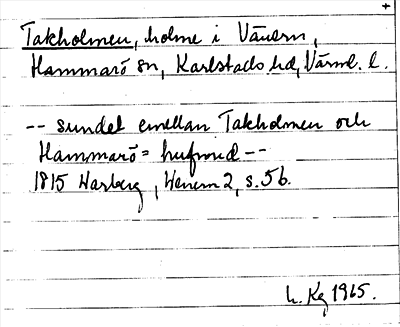 +
Takholmen, holme i Vänern,
Hammarö sn, Karlstads hd, Värml. l.
-- sundet emellan Takholmen och
Hammarö = hufvud --
1815 Warberg, Wenern 2, s. 56.
L. Kg 1965.